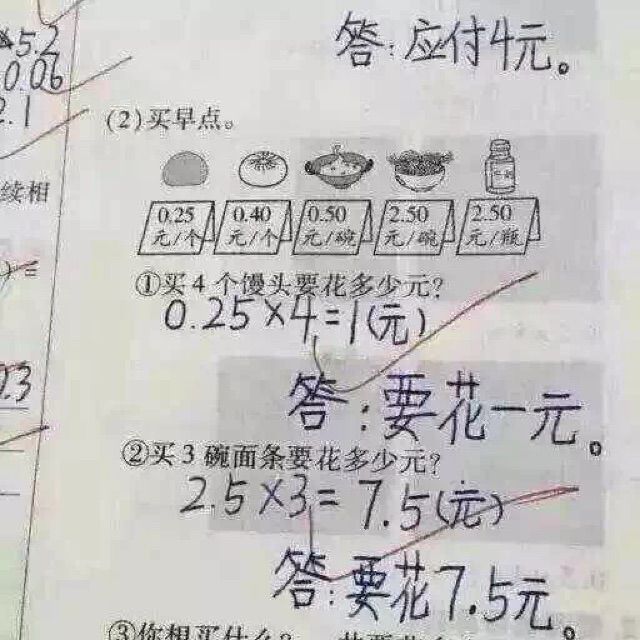 答:应付4元。
5.2
0.06
2.1
(2)买早点。
续相
0.25 0.40 0.50 2.50 2.50
元/个 元/个 元/碗 元/碗 元/瓶
) =
①买4个馒头要花多少元?
0.25×4=1(元)
答:要花一元。
②买3碗面条要花多少元?
2.5×3=7.5(元)
答:要花7.5元。
③你想买什么?